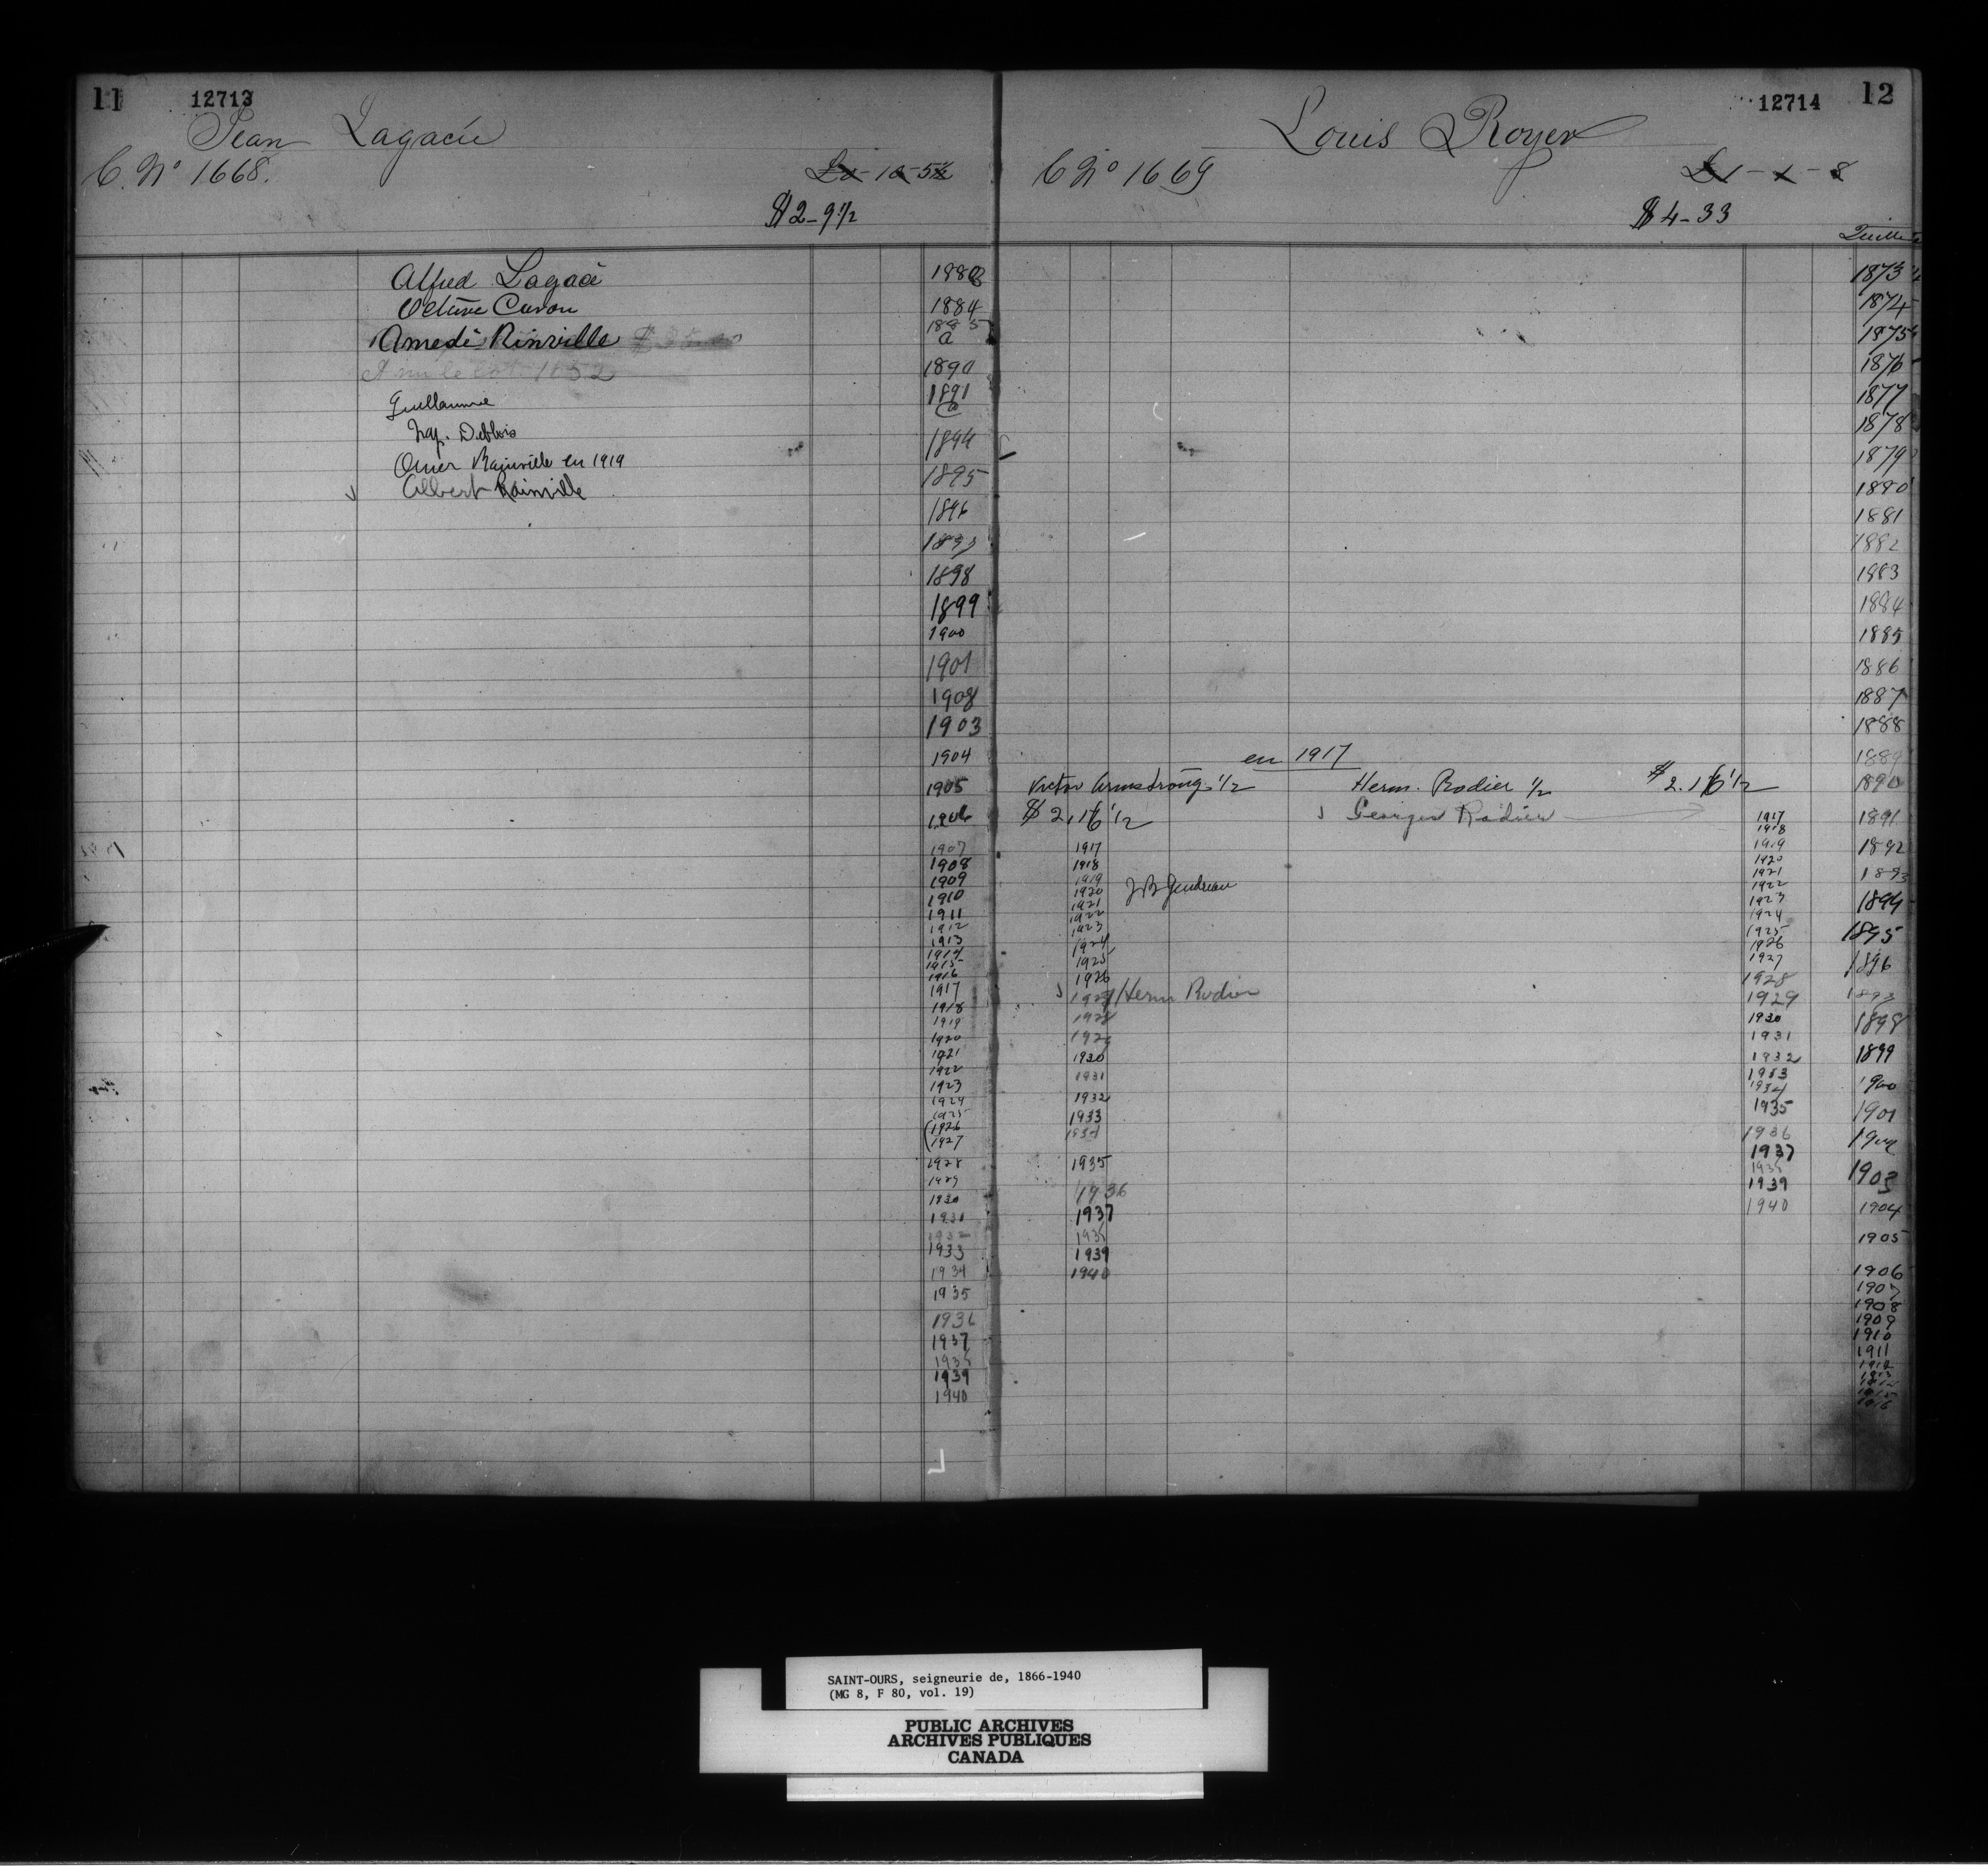 11 12713
Jean Lagacée
C. No 1668. £0-10-5½
$2-9½
Alfred Lagacé
Octave Caron
Amedé Rinville
Guillaume
Nap. Deblois
Omer Rainville en 1919
Albert Rainville
1883
1884
1885
a
1890
1891
Co
1894
1895
1896
1897
1898
1899
1900
1901
1902
1903
1904
1905
1906
1907
1908
1909
1910
1911
1912
1913
1914
1915
1916
1917
1918
1919
1920
1921
1922
1923
1924
1925
1926
1927
1928
1929
1930
1931
1932
1933
1934
1935
1936
1937
1938
1939
1940
12714 12
Louis Royer
C No 1669 £1-1-8
$4-33
en 1917
Victor Armstrong ½ Herm. Rodier ½ $2.16½
$2.16½ Georges Rodier
1917
1918
1919
1920 J B Gendreau
1921
1922
1923
1924
1925
1926
1927 Herm Rodier
1928
1929
1930
1931
1932
1933
1934
1935
1936
1937
1938
1939
1940
1917
1918
1919
1920
1921
1922
1923
1924
1925
1926
1927
1928
1929
1930
1931
1932
1933
1934
1935
1936
1937
1938
1939
1940
1873
1874
1875
1876
1877
1878
1879
1880
1881
1882
1883
1884
1885
1886
1887
1888
1889
1890
1891
1892
1893
1894
1895
1896
1897
1898
1899
1900
1901
1902
1903
1904
1905
1906
1907
1908
1909
1910
1911
1912
1913
1915
1916
SAINT-OURS, seigneurie de, 1866-1940
(MG 8, F 80, vol. 19)
PUBLIC ARCHIVES
ARCHIVES PUBLIQUES
CANADA